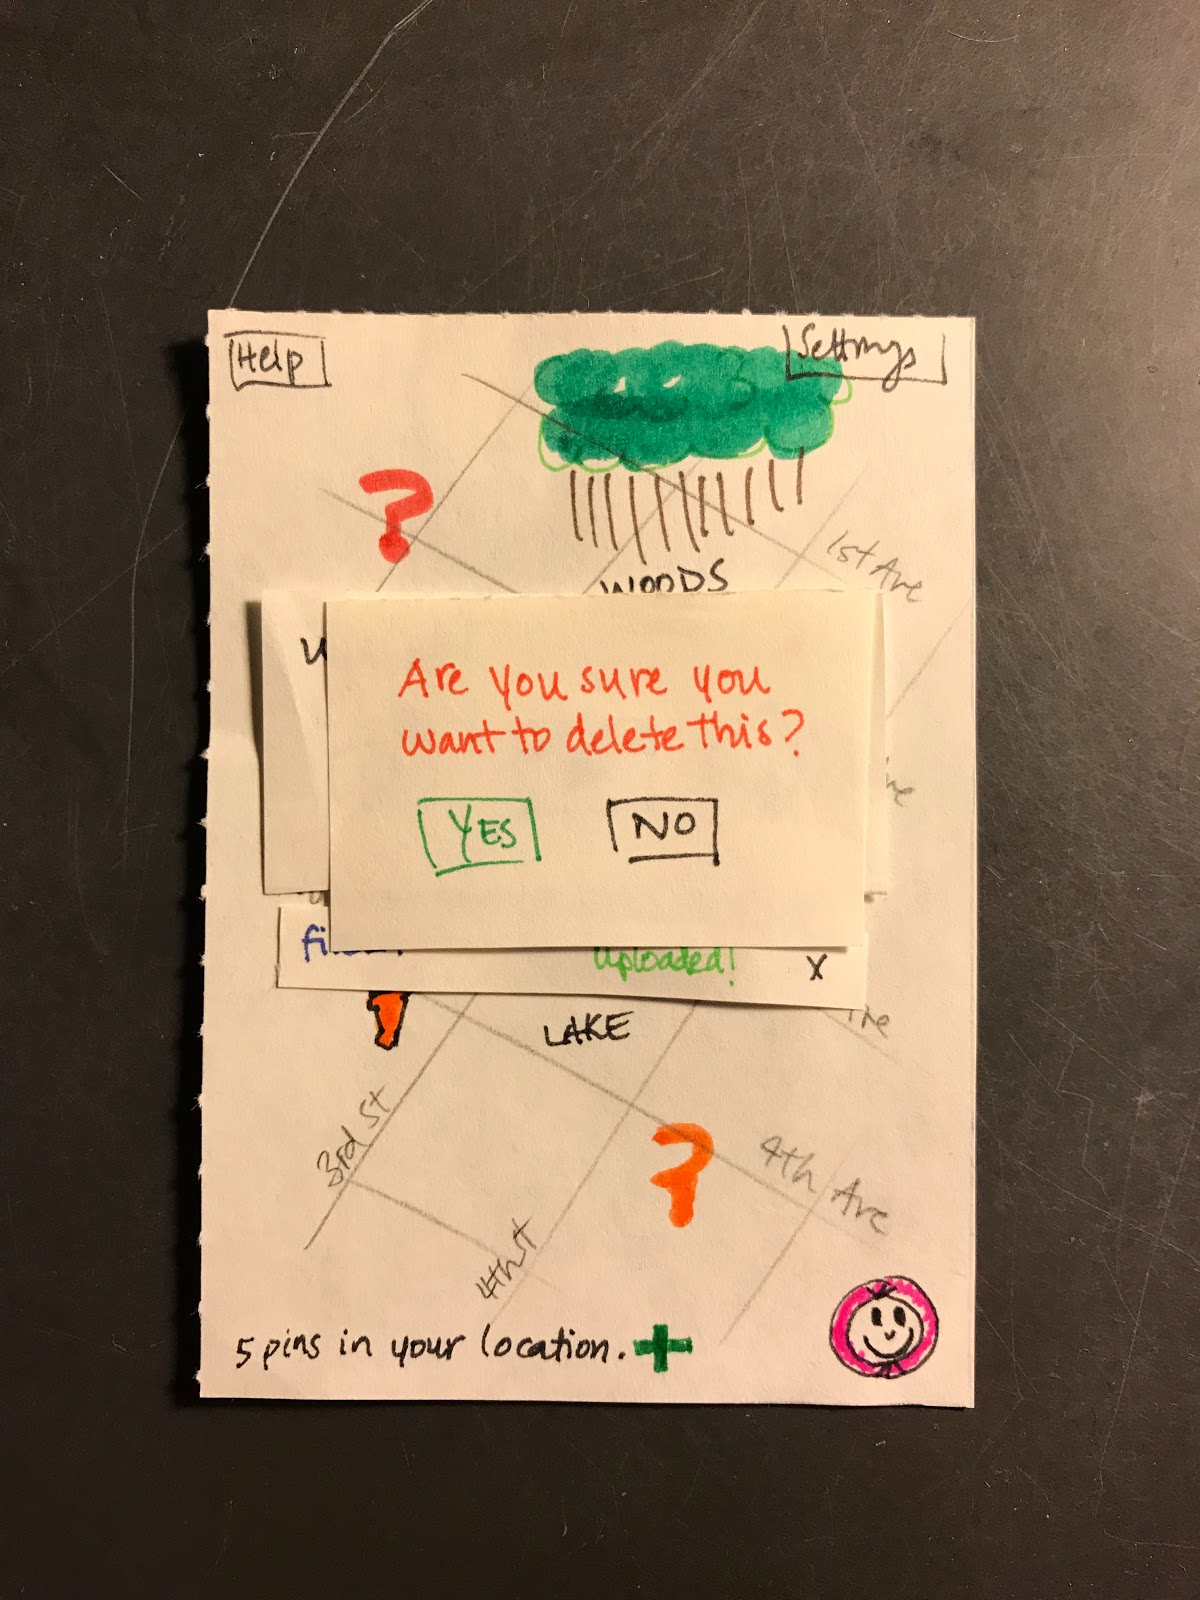 Help
Settings
WOODS
1st Ave
Are you sure you
want to delete this?
YES
NO
Uploaded!
X
LAKE
3rd St
4th Ave
4th st
5 pins in your location. +